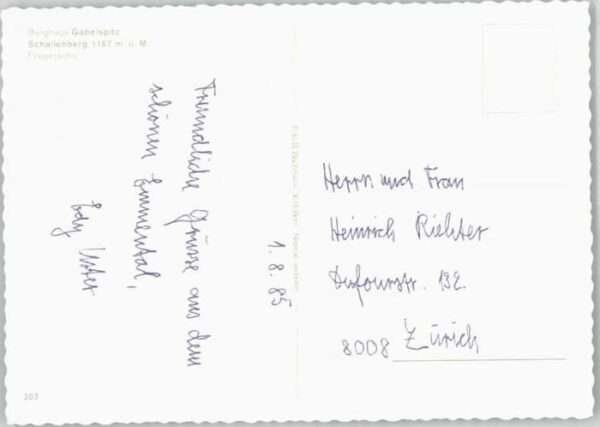 Berghaus Gabelspitz
Schallenberg 1167 m ü. M.
Freundliche Grüsse aus dem
schönen Emmental,
1. 8. 85
Herrn und Frau
Heinrich Richter
Dufourstr. 132
8008 Zürich
203